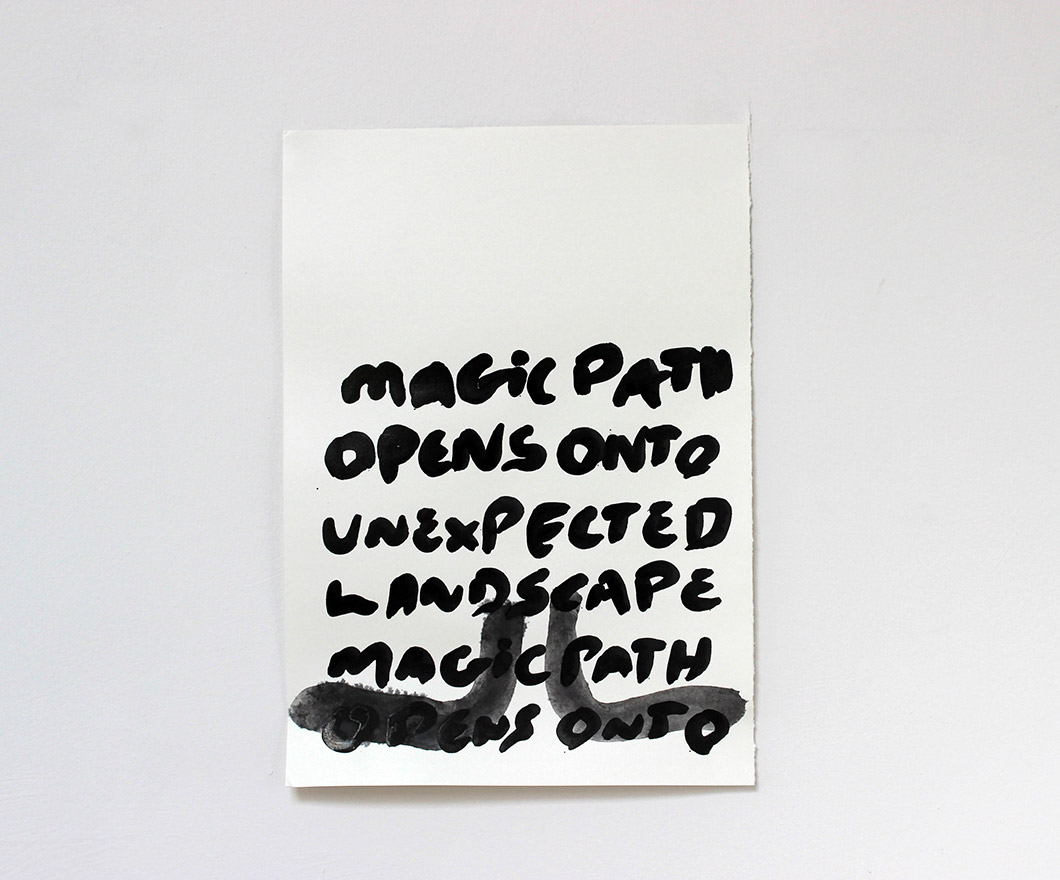 MAGiC PATH
OPENS ONTO
UNEXPECTED
LANDSCAPE
MAGiC PATH
OPENS ONTO